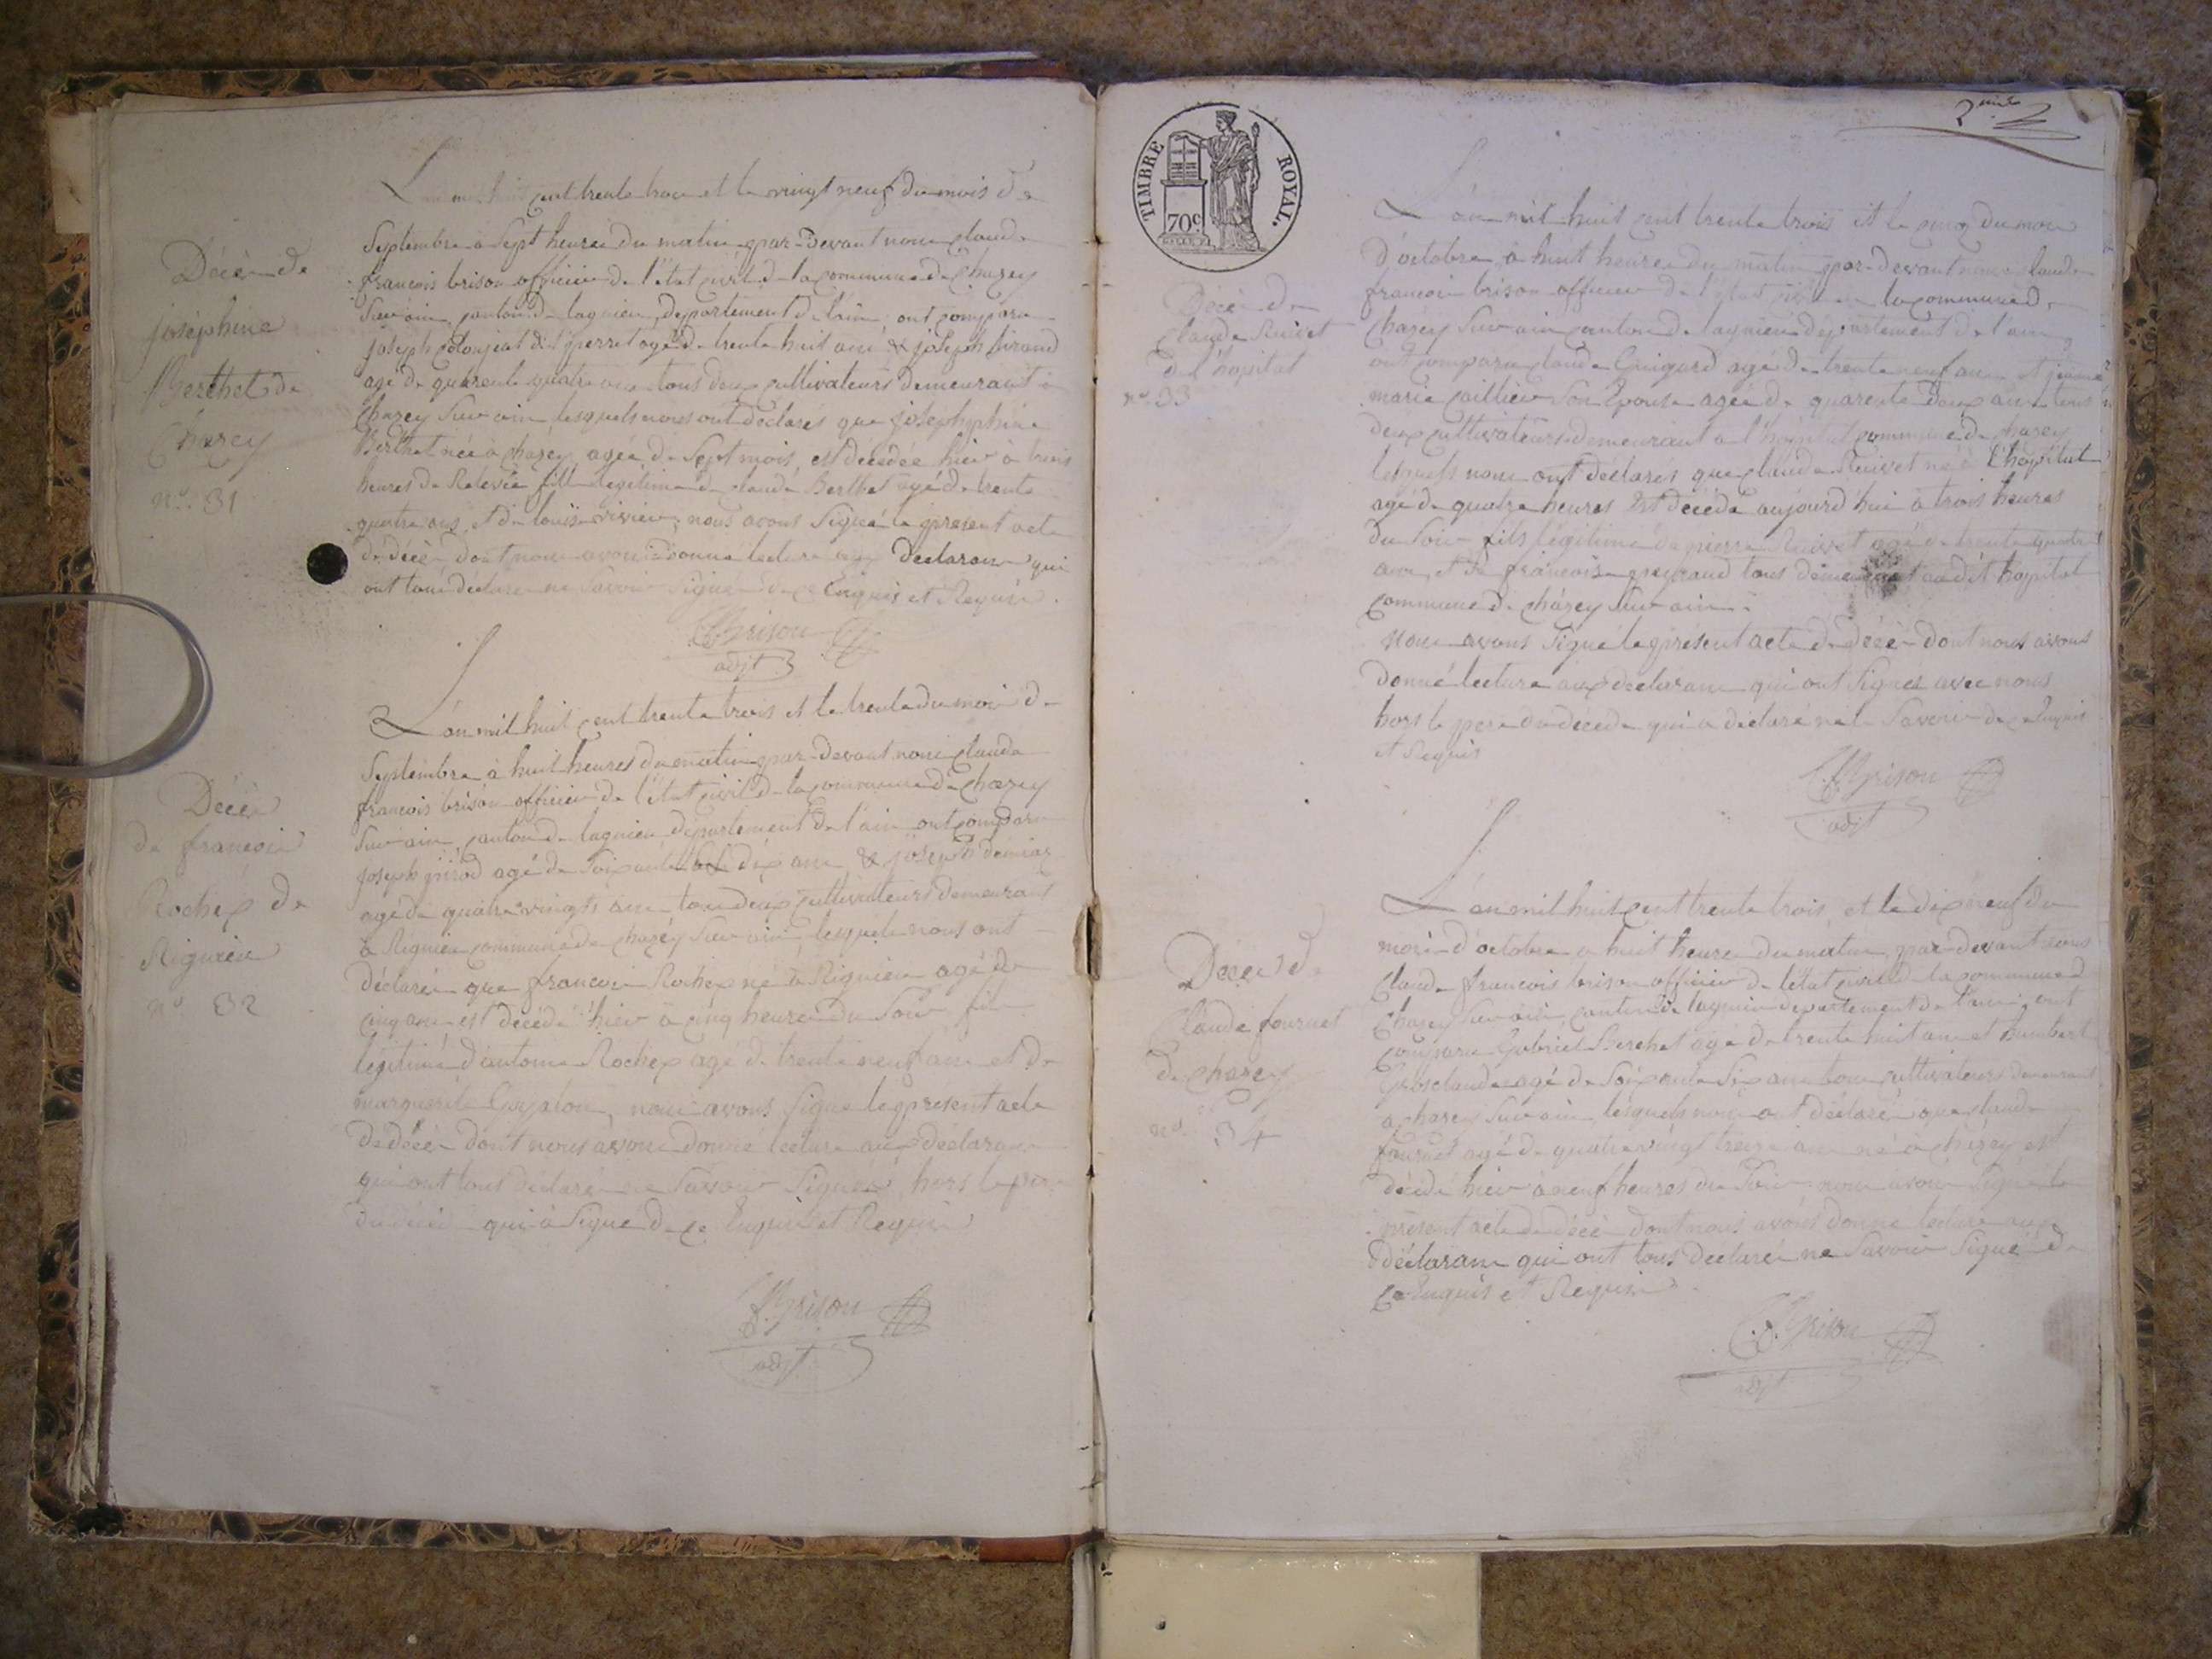 Décès de
joséphine
Berthet de
Chazey
n°. 31
cent trente trois et le vingt neuf du mois de
Septembre à Sept heures du matin par-devant nous claude
françois brison officier de l'état civil de la commune de Chazey
Sur ain, canton de lagnieu, département de l'ain; ont comparu
joseph de l'perret agé de trente huit ans & joseph
agé de quarente quatre ans tous deux cultivateurs demeurant à
Chazey Sur ain lesquels nous ont déclarés que joséphphine
Berthet née à chazey, agée de Sept mois, est décédée hier à trois
heures de Relevée fille légitime de claude Berthet agé de trente
quatre ans, et de louise vivier; nous avons Signé le présent acte
de décès dont nous avons donné lecture aux declarans qui
ont tous declarés ne Savoir Signer de ce Enquis et Requis.
CfBrison
adjt
Décès
de francois
Rochex de
Rignieu
n° 32
L'an mil huit cent trente trois et le trente du mois de
Septembre à huit heures du matin par-devant nous claude
francois brison officier de l'état civil de la commune de Chazey
Sur ain, canton de lagnieu département de l'ain ont comparu
joseph girod agé de Soixante dix ans & joseph
agé de quatre vingts ans tous deux cultivateurs demeurans
à Rignieu commune de chazey Sur ain, lesquels nous ont
déclarés que francois Rochex né à Rignieu agé de
cinq ans est décédé hier à cinq heures du Soir fils
légitime d'antoine Rochex agé de trente neuf ans et de
marguerite nous avons signé le présent acte
de décès dont nous avons donné lecture aux déclarans
qui ont tous déclaré ne Savoir Signer, hors le père
du décédé qui à Signé de ce Enquis et Requis
CfBrison
adjt
2me
TIMBRE ROYAL.
70c
Décès de
Claude Ruivet
de l'hopital
n°. 33
L'an mil huit cent trente trois et le cinq du mois
d'octobre à huit heures du matin par-devant nous claude
francois brison officier de l'état civil de la commune de
Chazey Sur ain canton de lagnieu département de l'ain
ont comparu claude Guigard agé de trente neuf ans et jeanne
marie caillier Son Epouse agée de quarente deux ans tous
deux cultivateurs demeurant à l'hopital commune de chazey
lesquels nous ont déclarés que claude Ruivet né à L'hopital
agé de quatre heures Est décédé aujourd'hui à trois heures
du Soir fils légitime de pierre Ruivet agé de trente quatre
ans, et de françoise tous demeurant audit hopital
commune de Chazey Sur ain.
Nous avons Signé le présent acte de décès dont nous avons
donné lecture aux declarans qui ont Signés avec nous
hors le père du décédé qui a déclaré ne le Savoir de ce Enquis
et Requis
CfBrison
adjt
Décès de
Claude fournet
de chazey
n°. 34
L'an mil huit cent trente trois, et le dix neuf du
mois d'octobre à huit heures du matin, par-devant nous
Claude francois brison officier de l'état civil de la commune de
Chazey Sur ain canton de lagnieu département de l'ain; ont
comparu Gabriel Berchet agé de trente huit ans et humbert
Grosclaude agé de Soixante Six ans tous cultivateurs demeurant
à chazey Sur ain, lesquels nous ont déclarés que claude
fournet agé de quatre vingt treize ans né à chazey est
décédé hier à neuf heures du Soir nous avons Signé le
présent acte de décès dont nous avons donné lecture aux
déclarans qui ont tous declarés ne Savoir Signé de
ce Enquis et Requis.
CfBrison
adjt